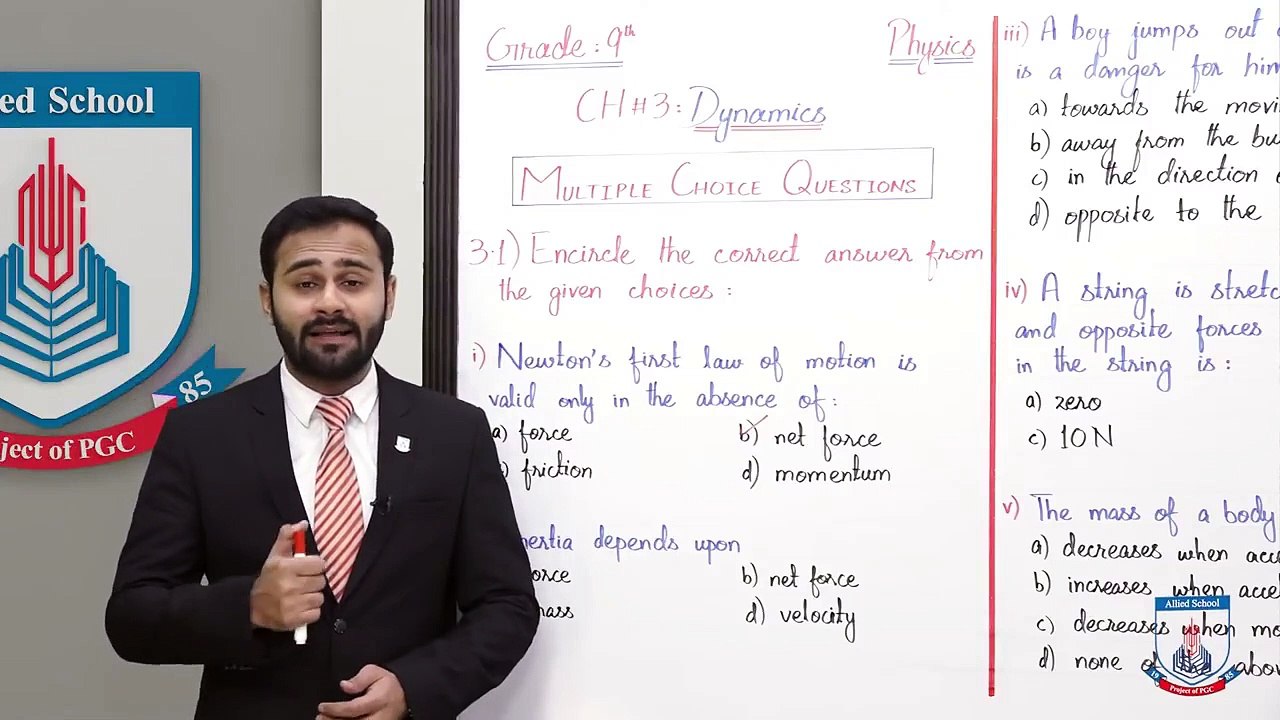 Allied School
85
Project of PGC
Grade: 9th
Physics
CH # 3: Dynamics
MULTIPLE CHOICE QUESTIONS
3.1) Encircle the correct answer from
the given choices:
i) Newton's first law of motion is
valid only in the absence of:
a) force
b) net force
friction
d) momentum
depends upon
b) net force
d) velocity
iii) A boy jumps out
is a danger for him
a) towards the
b) away from the
c) in the direction
d) opposite to the
iv) A string is
and opposite forces
in the string is:
a) zero
c) 10N
v) The mass of a body
a) decreases when
b) increases when
c) decreases when
d) none
Allied School
19 85
Project of PGC